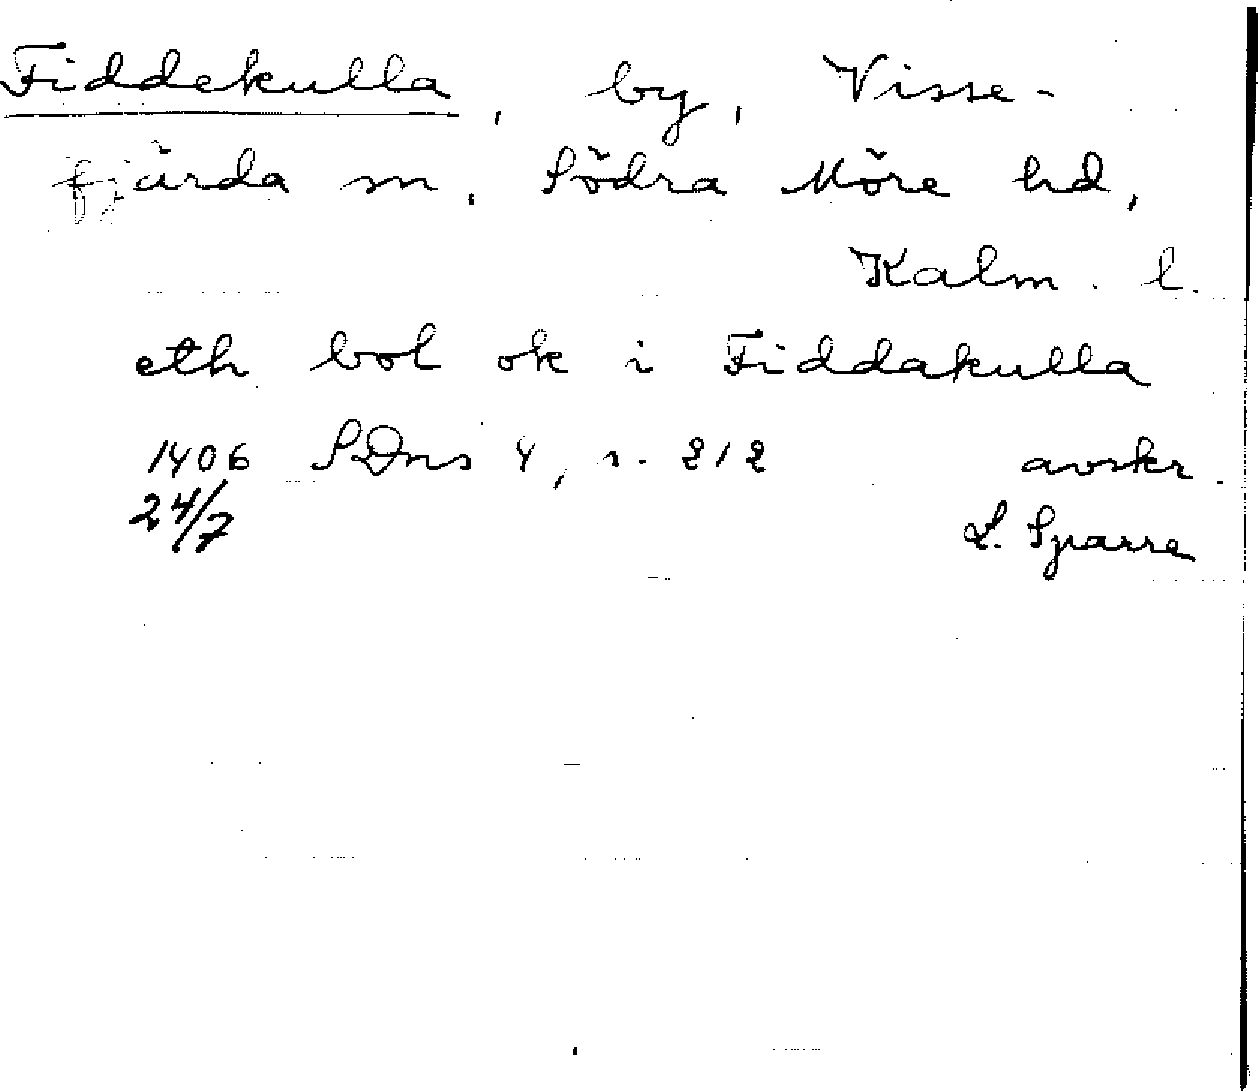 Fiddekulla, by, Visse-
fjärda sn, Södra Möre hd,
Kalm. l.
eth bol ok i Fiddakulla
1406 SDns 4, s. 212 avskr.
24/7 L. Sparre